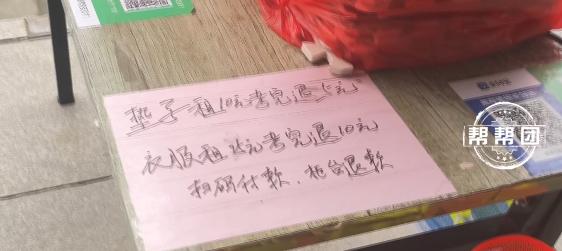 垫子租10元考完退5元
衣服租20元考完退10元
扫码付款，柜台退款
帮帮团